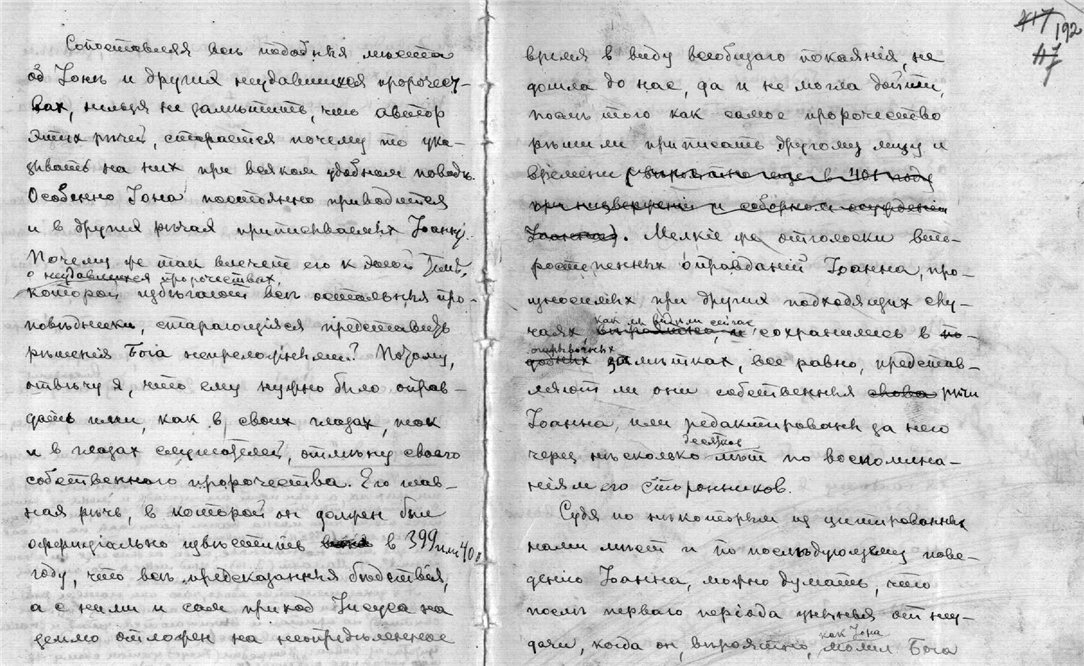 Сопоставляя всѣ подобныя мѣста
объ Іонѣ и другихъ неудавшихся пророчест-
вах, нельзя не замѣтить, что автор
этих рѣчей, старается почему то ука-
зывать на них при всяком удобном поводѣ.
Особенно Іона постоянно приводится
и в других рѣчах приписываемых Іоанну.
Почему же так влечет его к этой темѣ,
о неудавшихся пророчествах,
которой избѣгают всѣ остальные про-
повѣдники, старающіяся представить
рѣшенія Бога непреложными? Потому,
отвѣчу я, что ему нужно было оправ-
дать ими, как в своих глазах, так
и в глазах слушателей, отмѣну своего
собственного пророчества. Его глав-
ная рѣчь, в которой он должен был
оффиціально извѣстить в 399 или 400
году, что всѣ предсказанныя бѣдствія,
а с ними и сам приход Іисуса на
землю отложен на неопредѣленное
417 192
47
7
время в виду всеобщаго покаянія, не
дошла до нас, да и не могла дойти,
послѣ того как самое пророчество
рѣшили приписать другому лицу и
времени (вѣроятно еще в 401 году
при низверженіи и соборном осужденіи
Іоанна). Мелкіе же отголоски вто-
ростепенных оправданій Іоанна, про-
износимых при других подходящих слу-
как мы видим сейчас,
чаях, сохранились в по-
отрывочных
добных замѣтках, все равно, представ-
ляют ли они собственныя слова рѣчи
Іоанна, или редактированы за него
десятков
через нѣсколько лѣт по воспомина-
ніям его сторонников.
Судя по нѣкоторым из цитированных
нами мѣст и по послѣдующему пове-
денію Іоанна, можно думать, что
послѣ перваго періода унынья от неу-
как Іона
дачи, когда он, вѣроятно, молил Бога